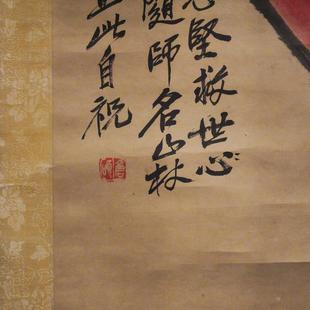 堅救世心
隨師名山林
此自祝